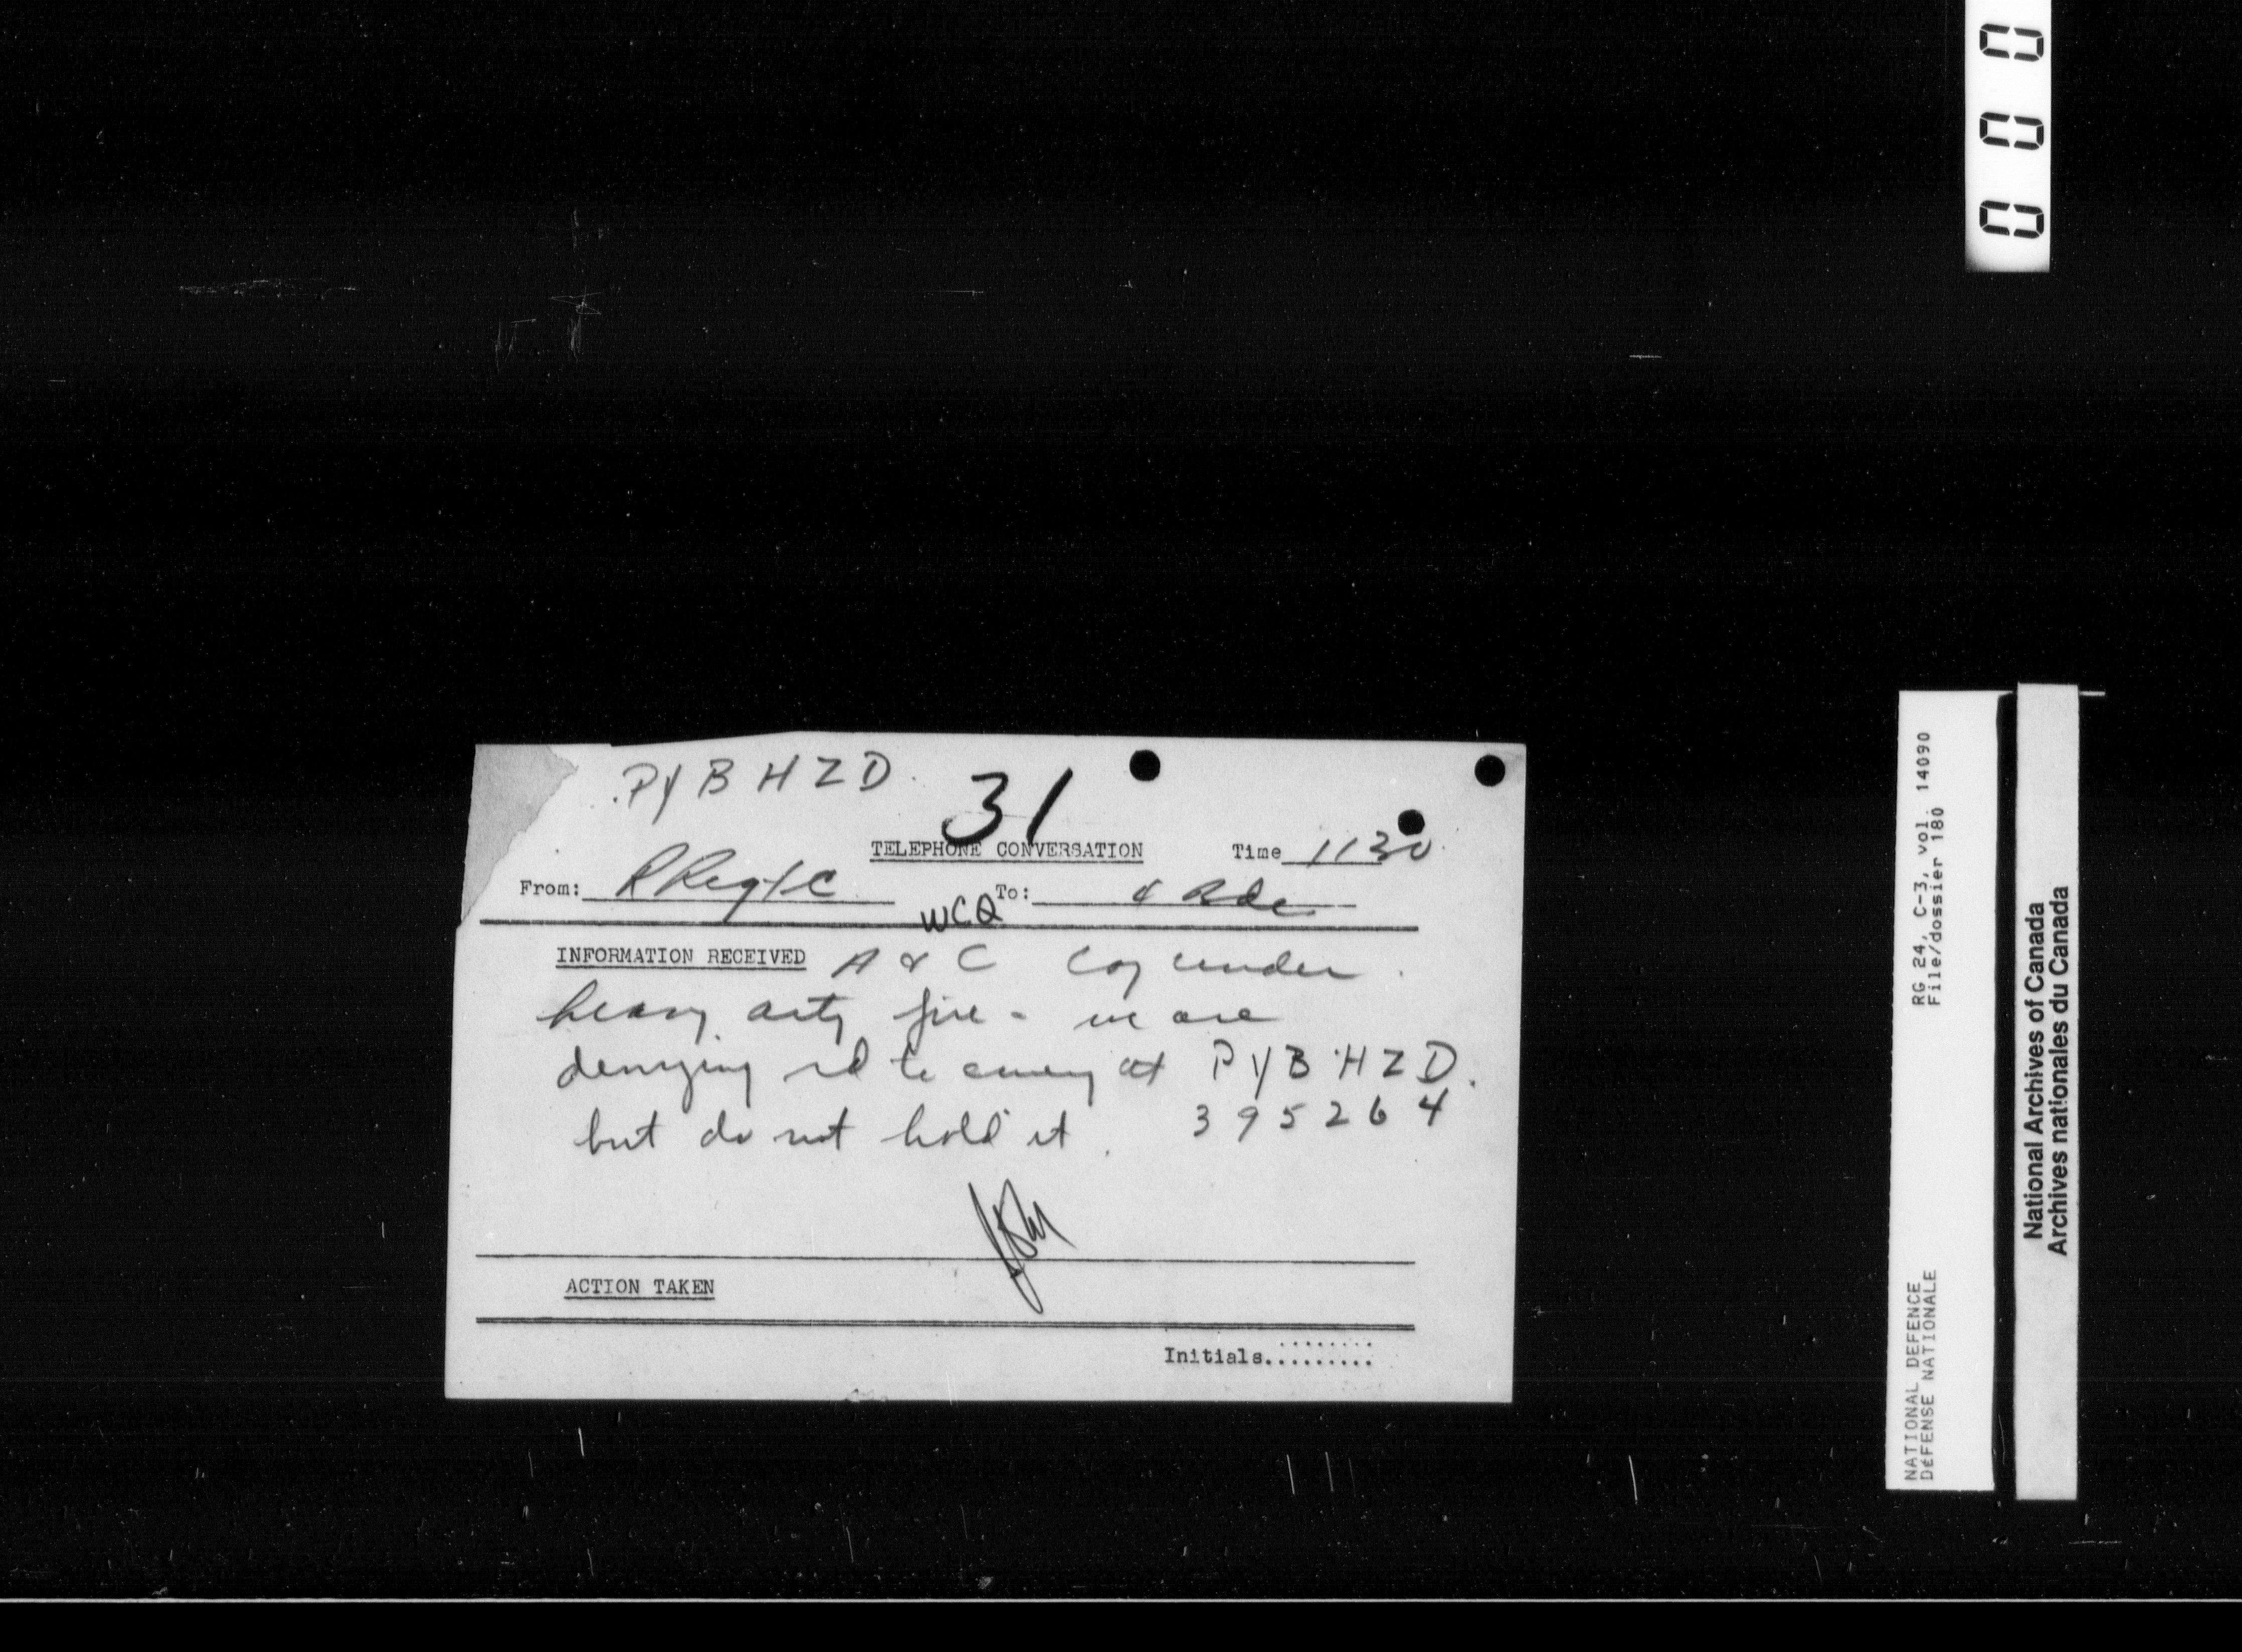 000
PYBHZD
31
TELEPHONE CONVERSATION Time 1130
From: RRegtC To: 4 Bde
WCQ
INFORMATION RECEIVED A & C Coy under
heavy arty fire - we are
denying rd to enemy at PYBHZD.
but do not hold it. 395264
ACTION TAKEN
Initials.........
RG 24, C-3, vol. 14090
File/dossier 180
NATIONAL DEFENCE
DÉFENSE NATIONALE
National Archives of Canada
Archives nationales du Canada